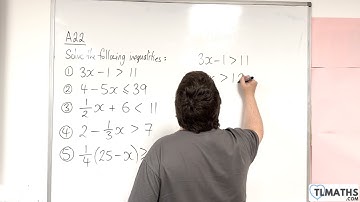 A22
Solve the following inequalities:
① 3x - 1 > 11
② 4 - 5x ≤ 39
③ 1/2 x + 6 < 11
④ 2 - 1/3 x > 7
⑤ 1/4 (25 - x) ≥
3x - 1 > 11
> 12
TLMATHS.COM